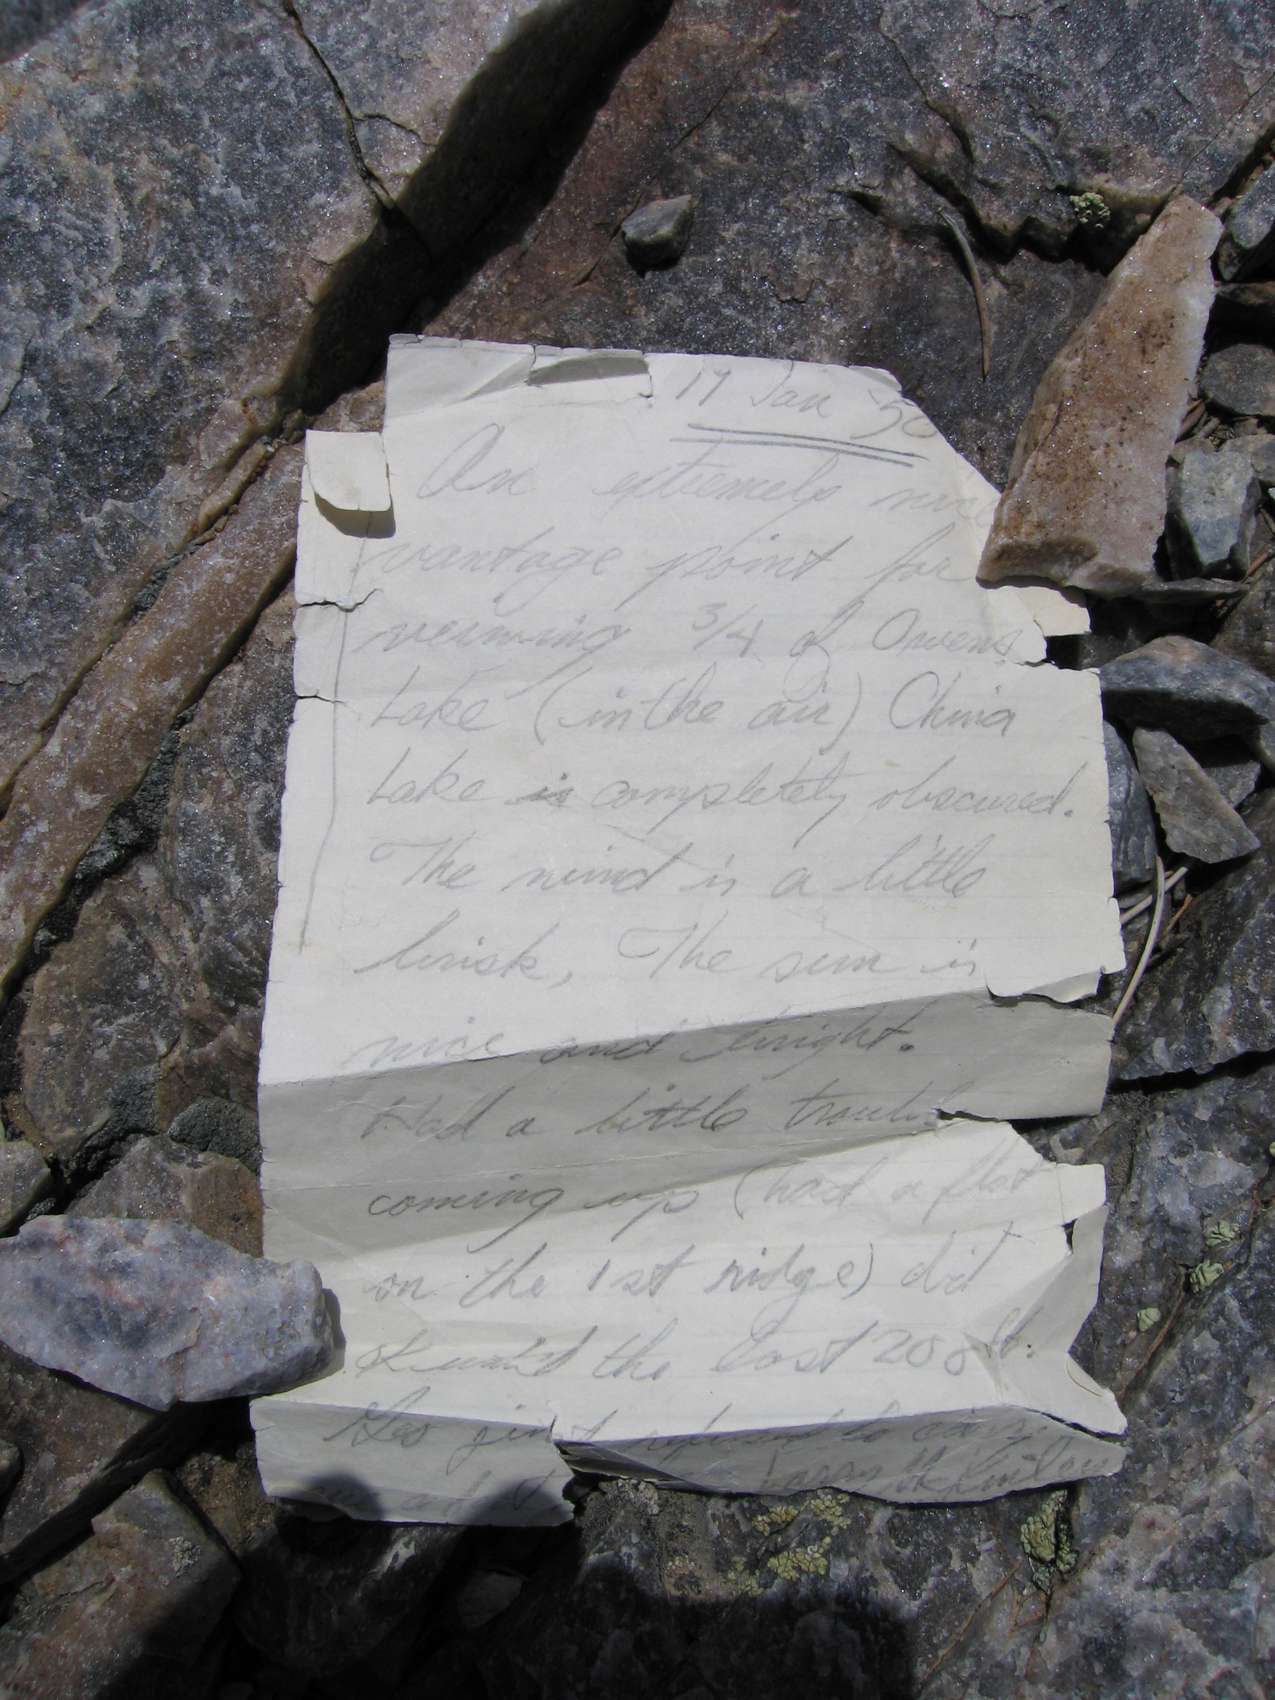 17 Jan '50
An extremely nice
vantage point for
viewing 3/4 of Owens
Lake (in the air) China
Lake is completely obscured.
The wind is a little
brisk, The sun is
nice and bright.
Had a little trouble
coming up (had a flat
on the 1st ridge) did
the last 200 ft.